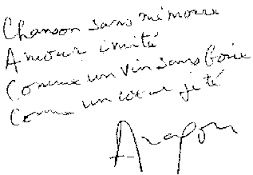 Chanson sans mémoire
Amour imité
Comme un vin sans boire
Comme un cœur jeté
Aragon